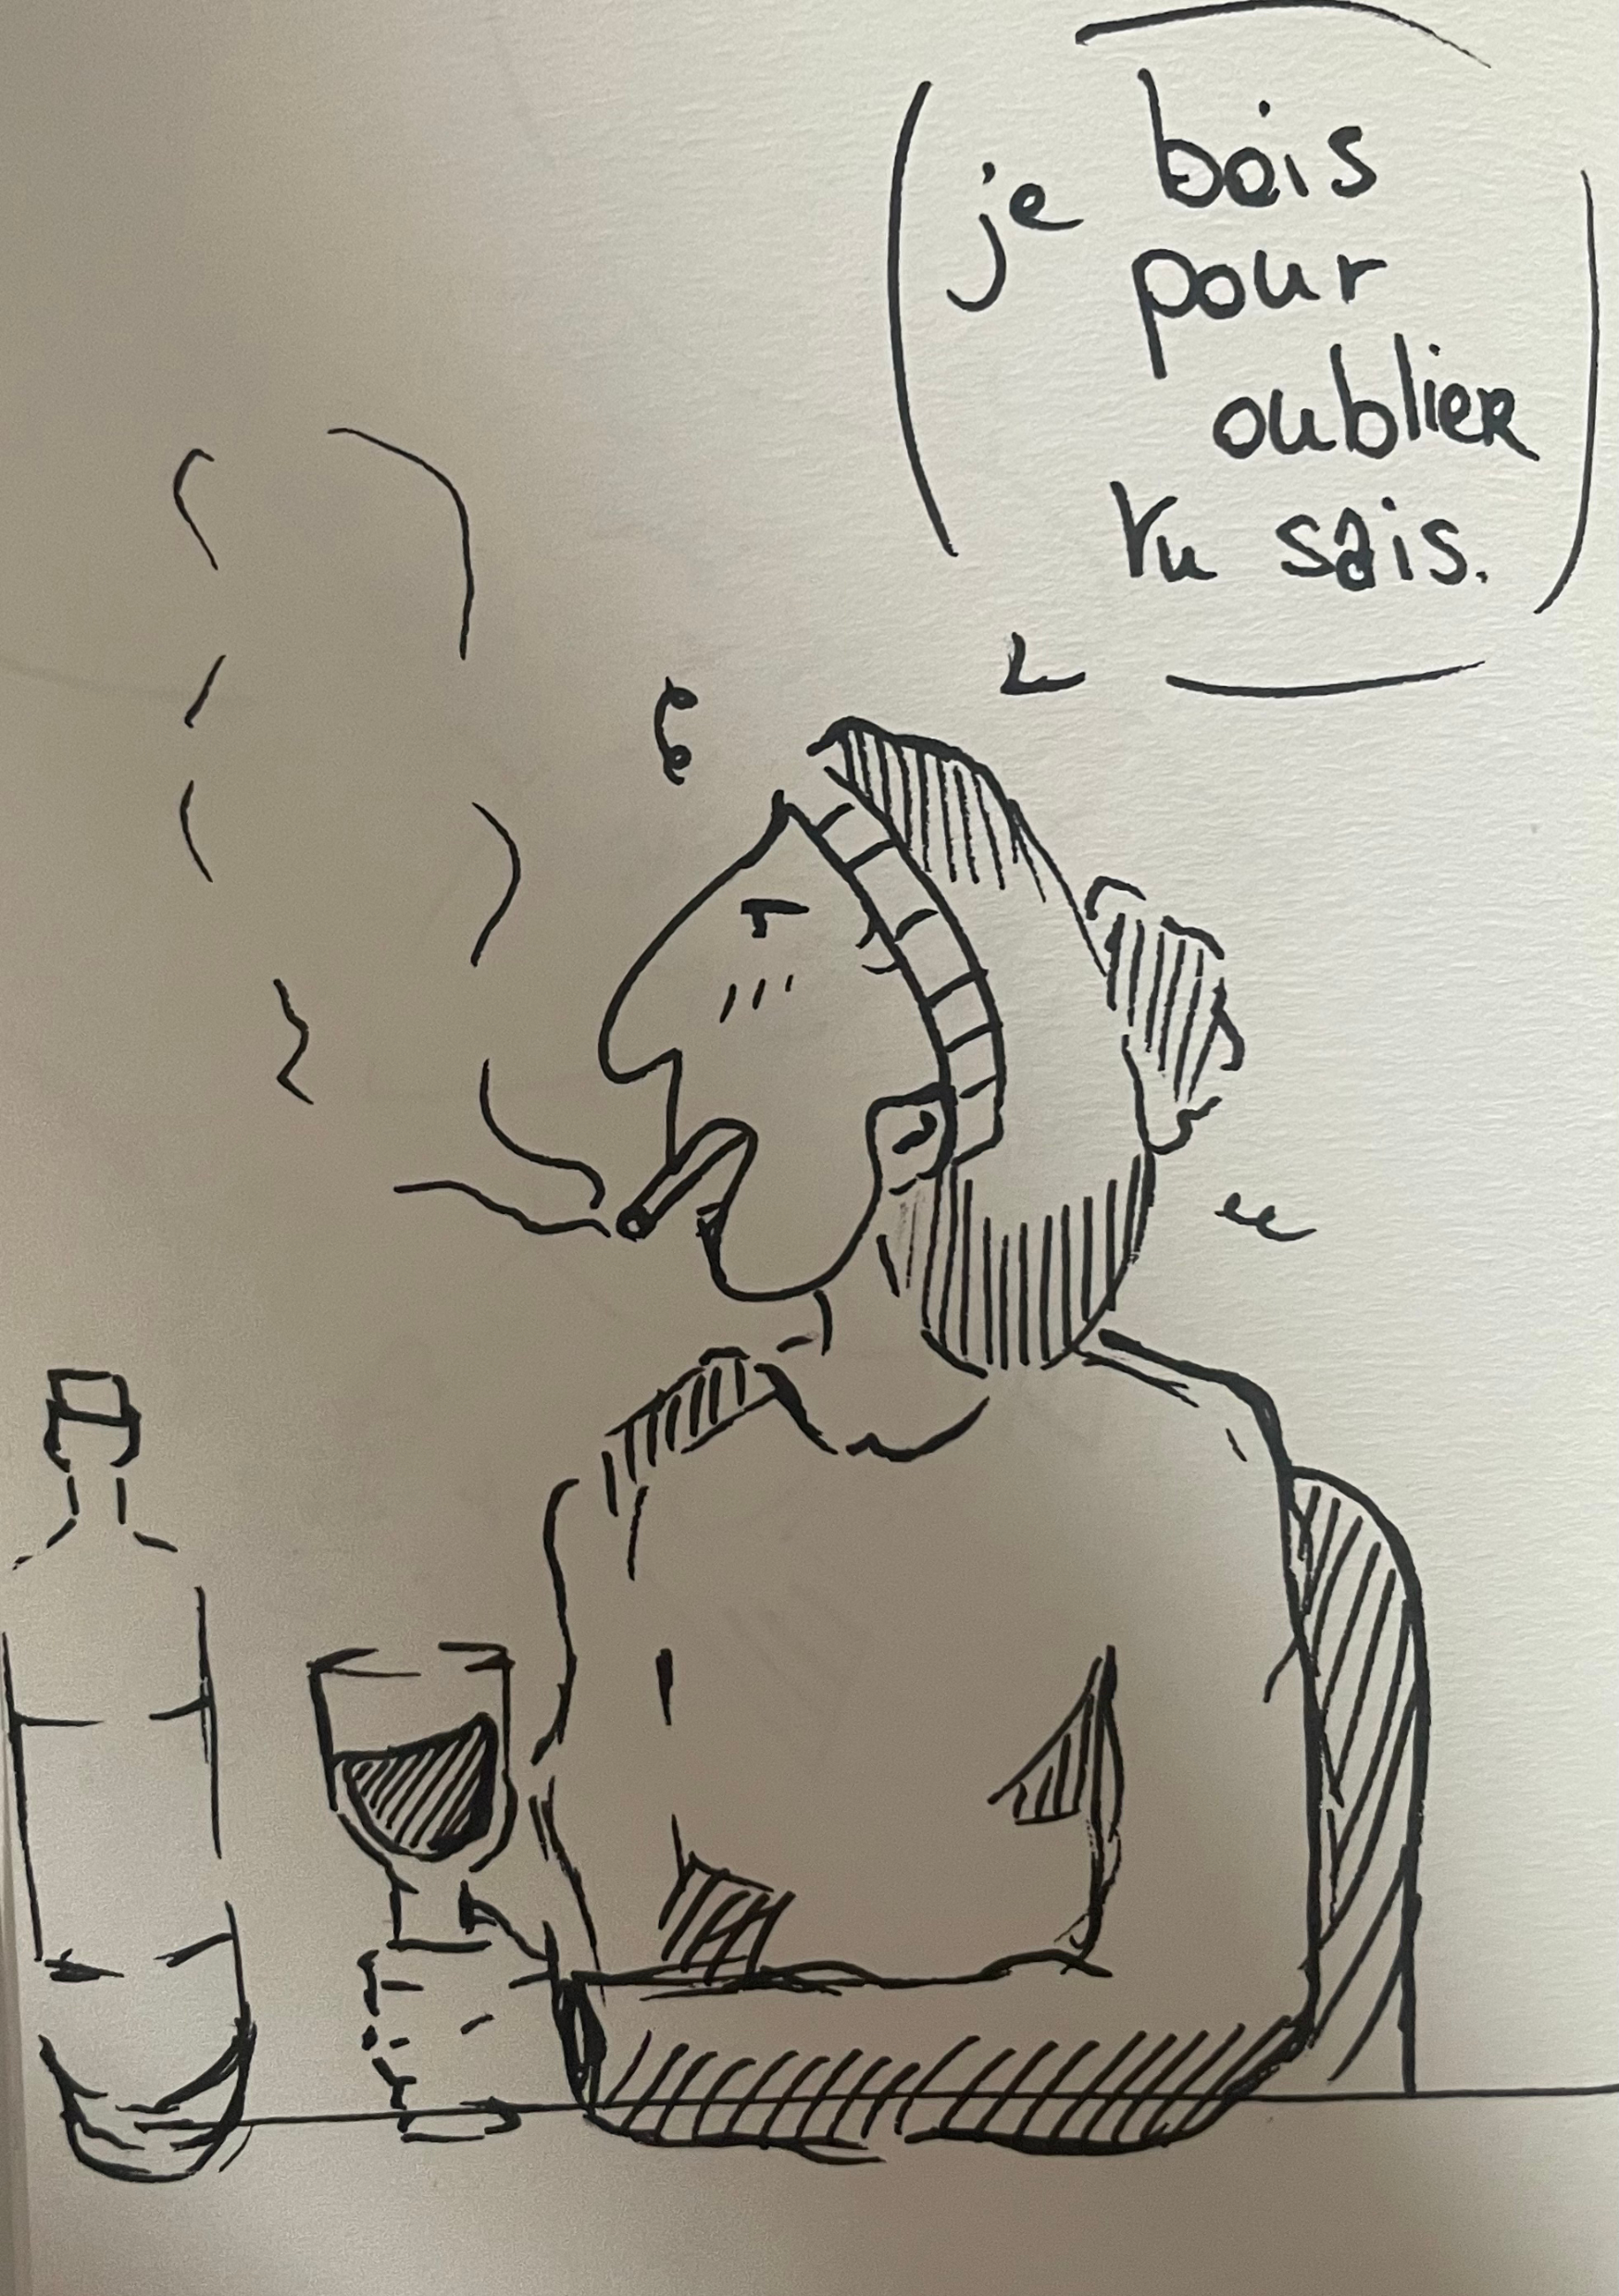 je bois
pour
oublier
tu sais.